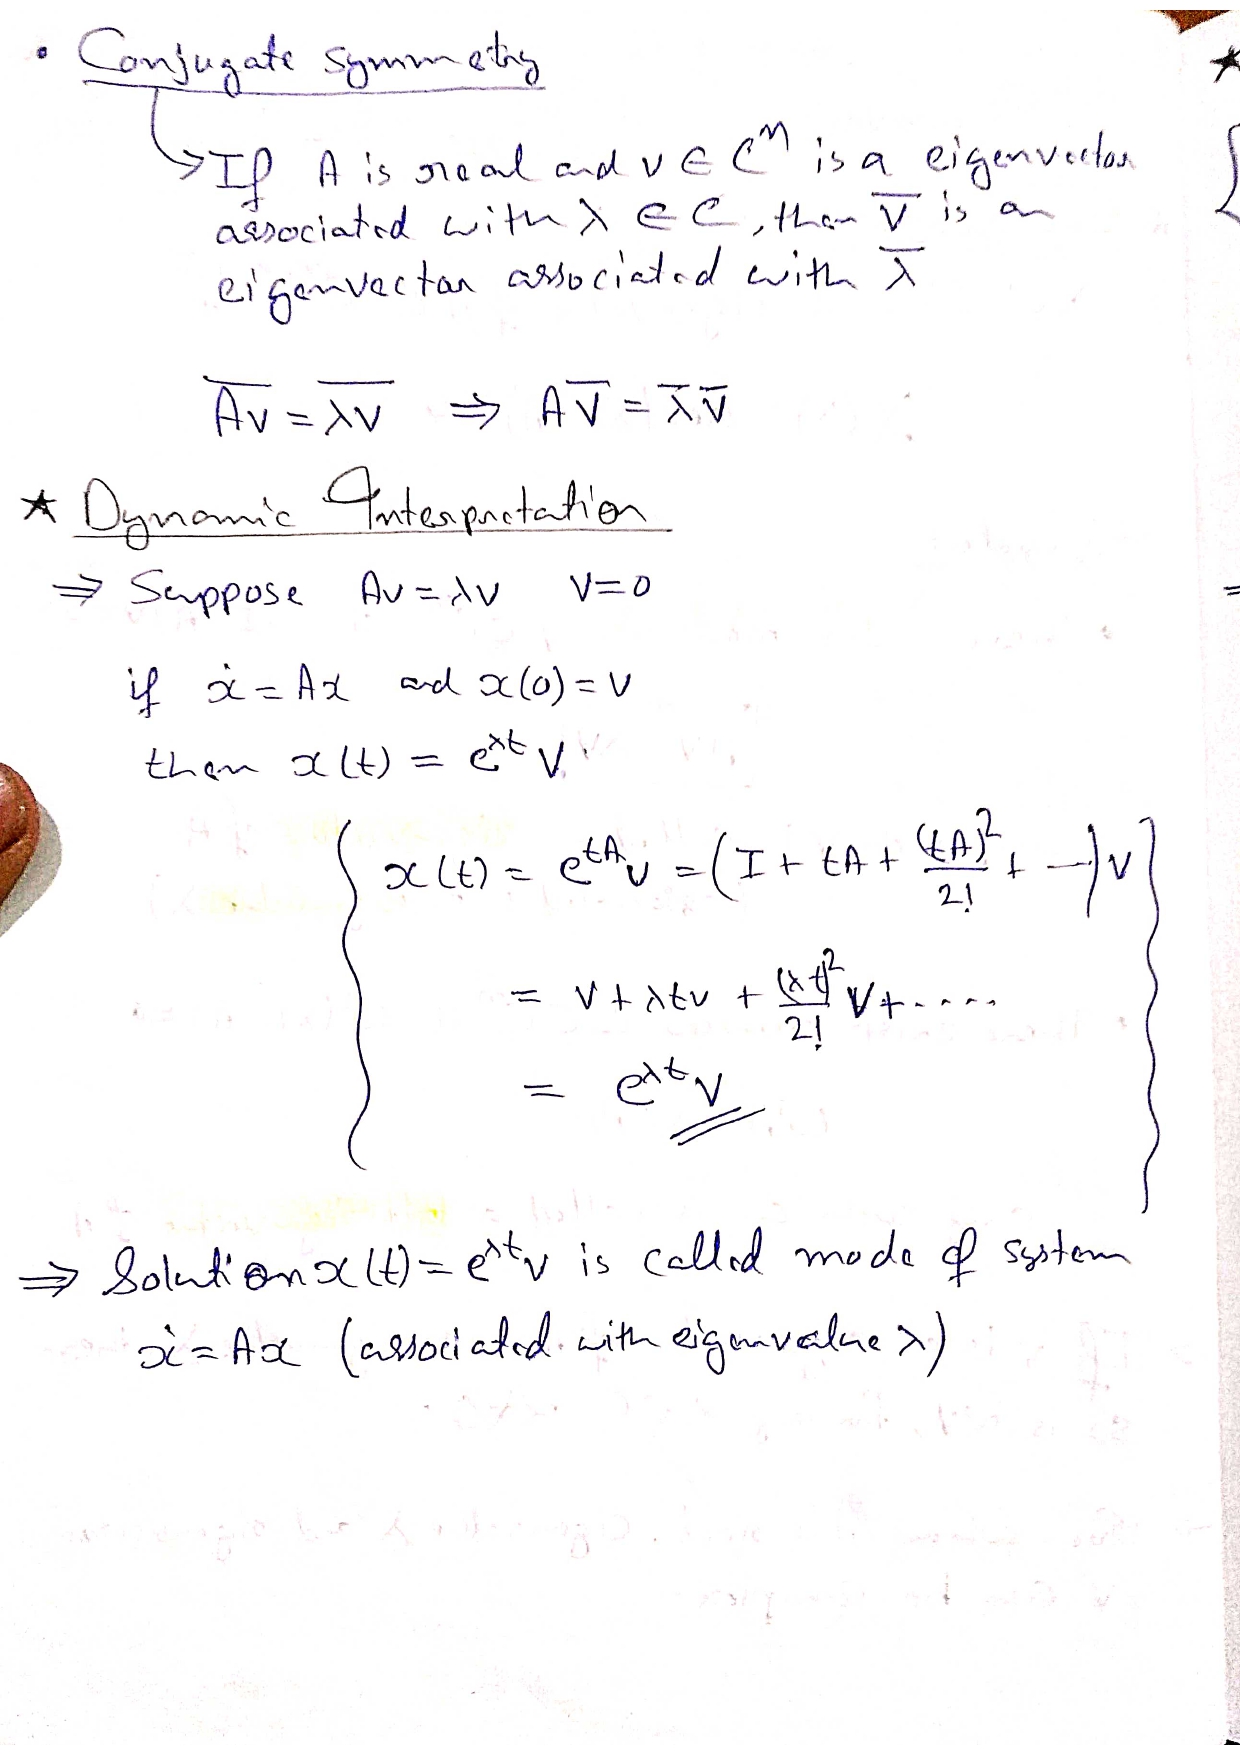 • Conjugate symmetry
→ If A is real and v ∈ Cⁿ is a eigenvector
associated with λ ∈ C, then v̅ is an
eigenvector associated with λ̅
A̅v̅ = λ̅v̅ ⇒ Av̅ = λ̅ v̅
★ Dynamic Interpretation
⇒ Suppose Av = λv v=0
if ẋ = Ax and x(0) = v
then x(t) = e^λt v.
{ x(t) = e^tA v = (I + tA + (tA)²/2! + ---) v }
= v + λtv + (λt)²/2! v + .....
= e^λt v
⇒ Solution x(t) = e^λt v is called mode of system
ẋ = Ax (associated with eigenvalue λ)